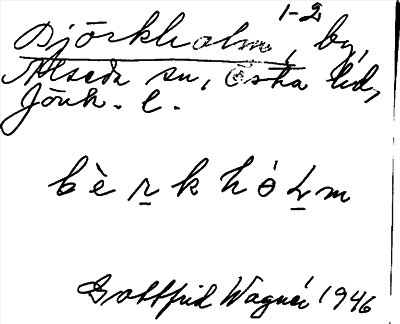 Björkholm 1-2, by,
Alseda sn, Östra hd,
Jönk. l.
bè ṟ k h ó ḻ m
Gottfrid Wagnér 1946